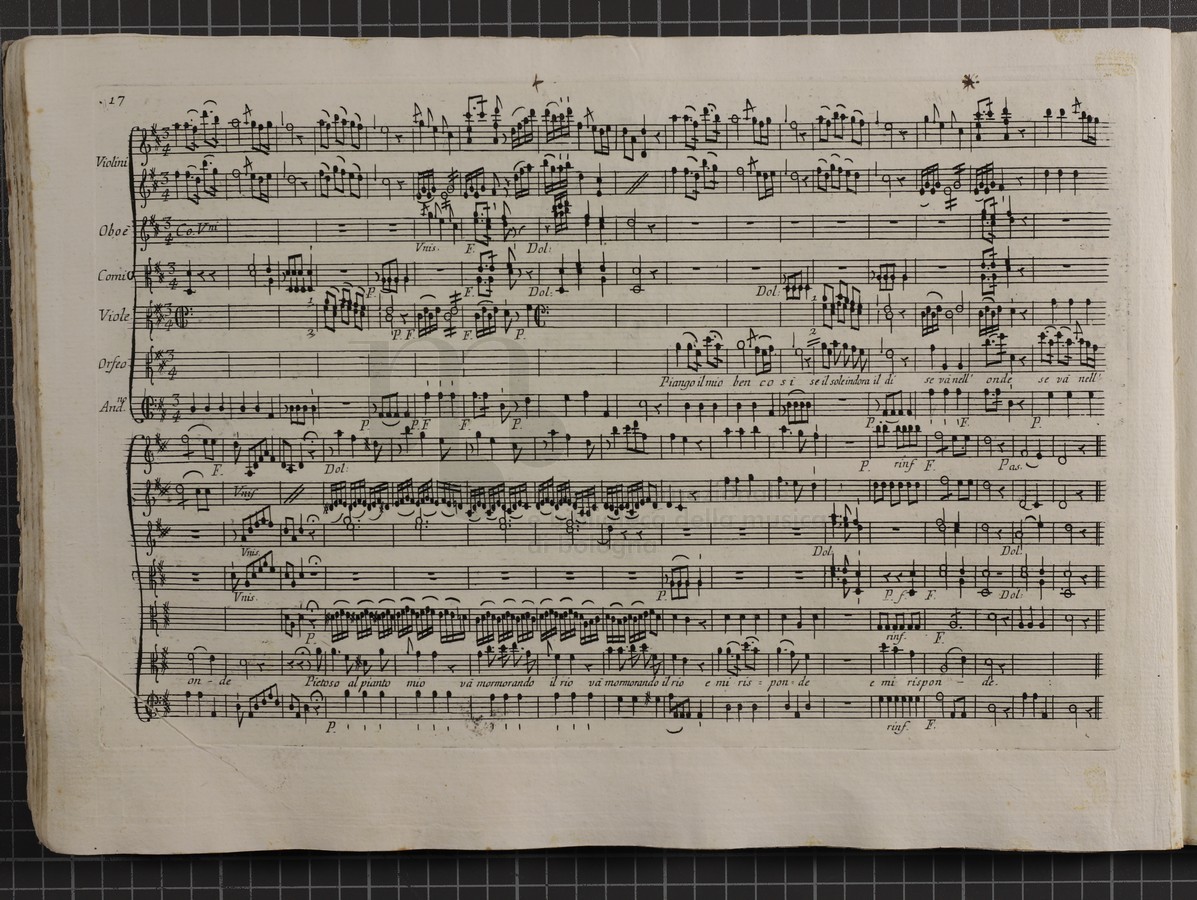 17
Violini
Oboè
Co. Vni
Vnis. F. Dol:
Corni
P. F. Dol: Dol:
Viole
3 P. F F. P. 2
Orfeo
Piango il mio ben cosi se il sole indora il di se và nell' onde se và nell'
And.no
P. P.F F. P. P. F. P.
F. Dol: P. rinf F. Pas.
Vnis
Vnis. Dol Dol:
Vnis. P. P. f. F. Dol:
P. rinf. F.
on - de Pietoso al pianto mio và mormorando il rio và mormorando il rio e mi ris - pon - de e mi rispon - de.
P. rinf. F.